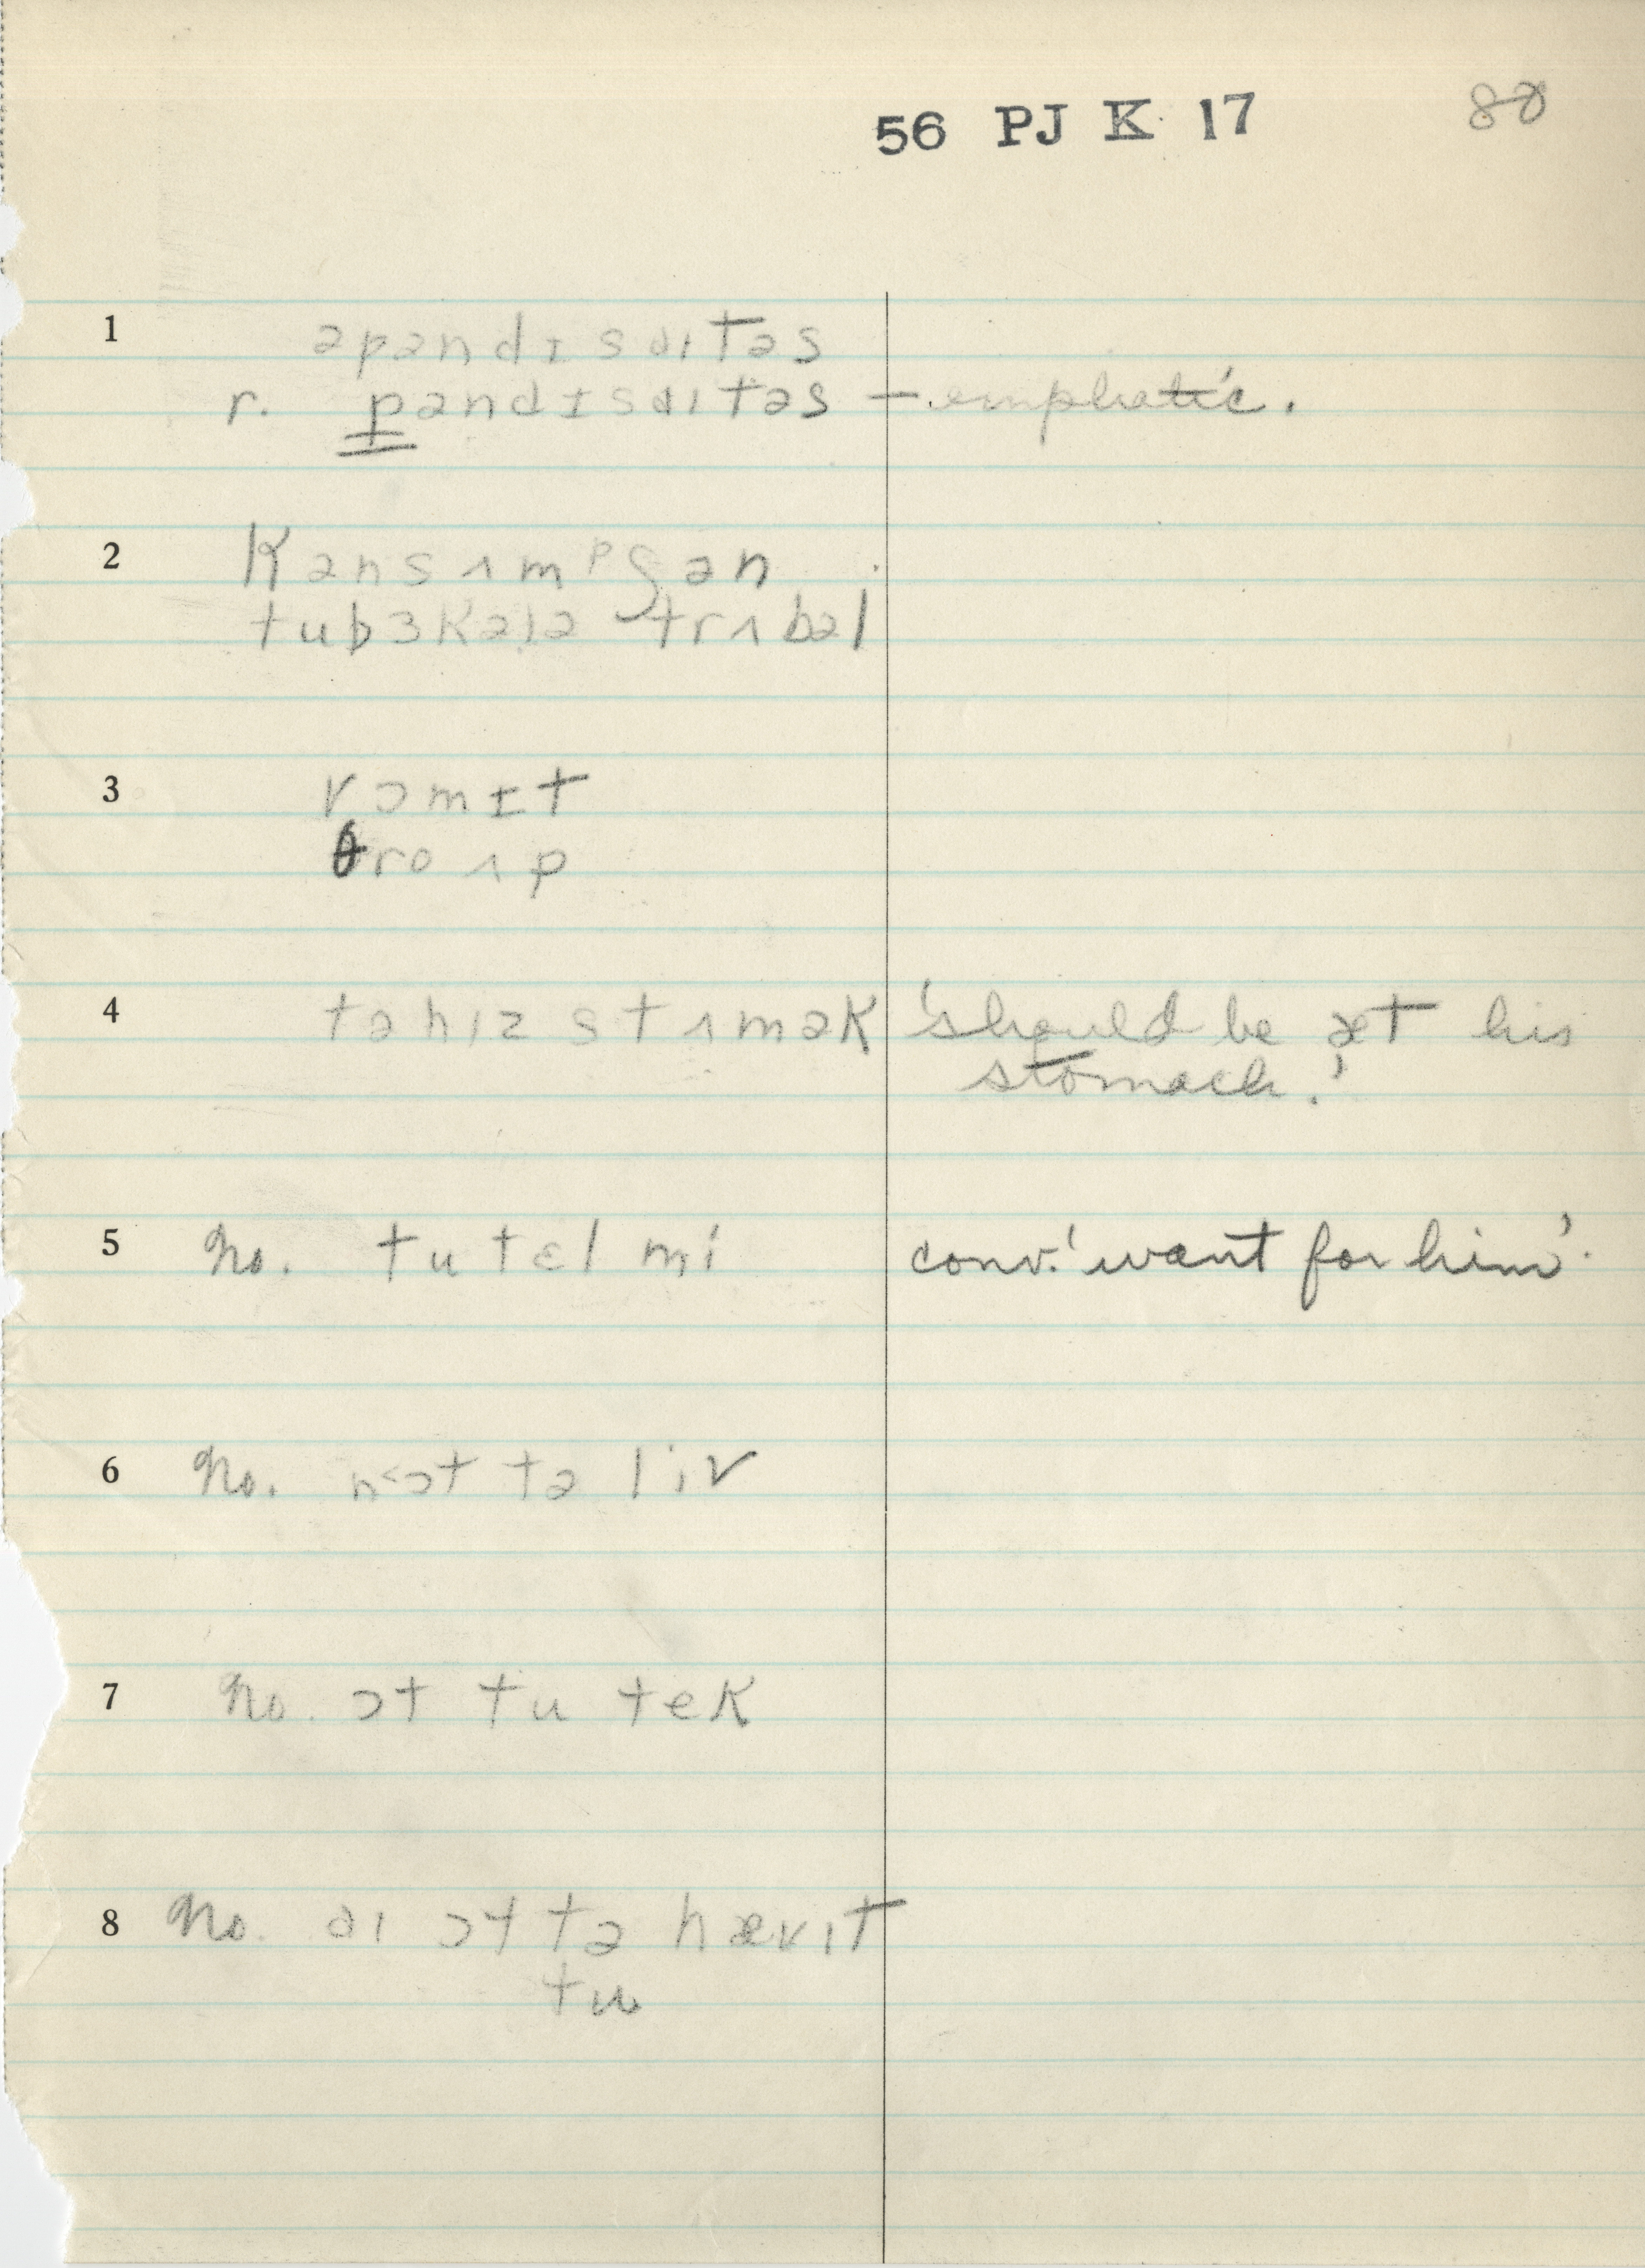 56 PJ K 17 80
1 əpɛndɪsɑɪtəs
r. pɛndɪsɑɪtəs – emphatic.
2 kənsʌmᵖʃən
tubɜkələ trʌbəl
3 vɔmɪt
θro ʌp
4 tə hɪz stʌmək 'should be æt his
stomach.'
5 No. tu tɛl mi conv. 'want for him'.
6 No. n<ɔt tə liv
7 No. ɔt tu tek
8 No. aɪ ɔt tə hævɪt
tu